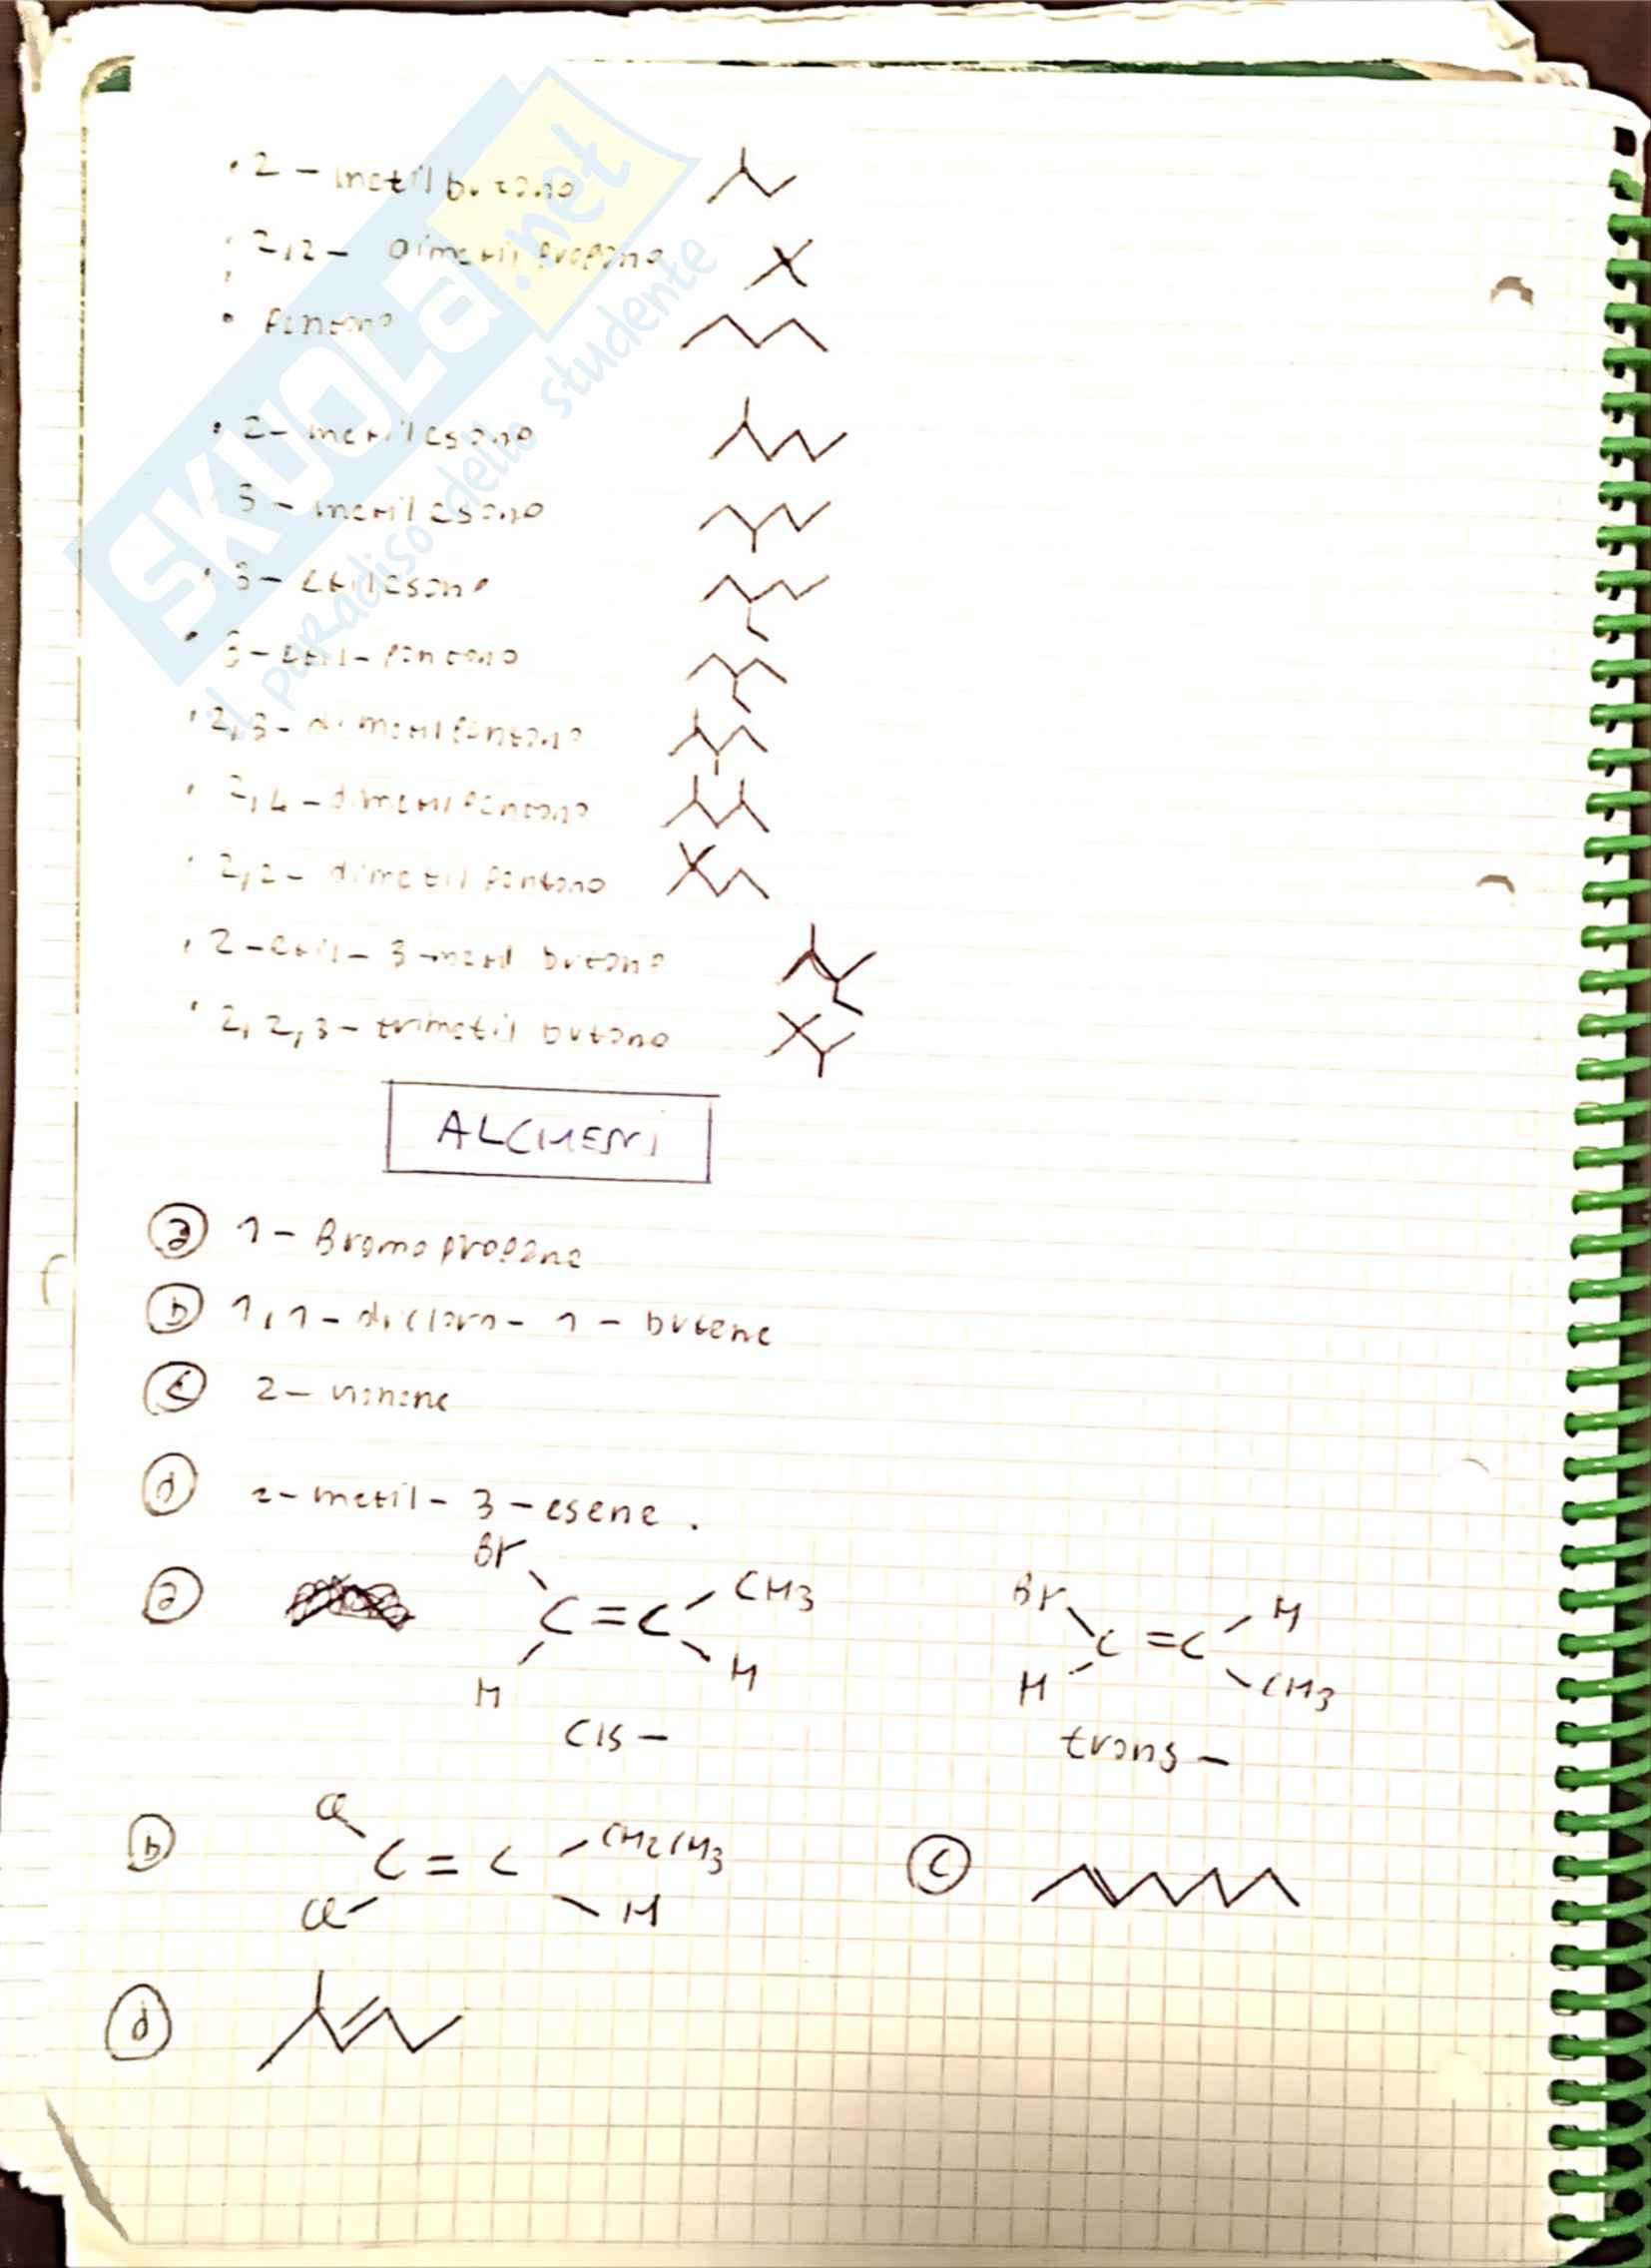 • 2 - metil butano
• 2,2 - dimetil propano
• pentano
• 2- metil esano
3 - metil esano
• 3 - etil esano
• 3 - etil - pentano
• 2,3 - dimetil pentano
• 2,4 - dimetil pentano
• 2,2 - dimetil pentano
• 2 - etil - 3 - metil butano
• 2,2,3 - trimetil butano
ALCHENI
a 1 - Bromo propene
b 1,1 - dicloro - 1 - butene
c 2 - nonene
d 2 - metil - 3 - esene .
a Br C = C CH3 H H Br C = C H H CH3
cis - trans -
b Cl C = C CH2CH3 Cl H c
d
SKUOLA.net
il paradiso dello studente